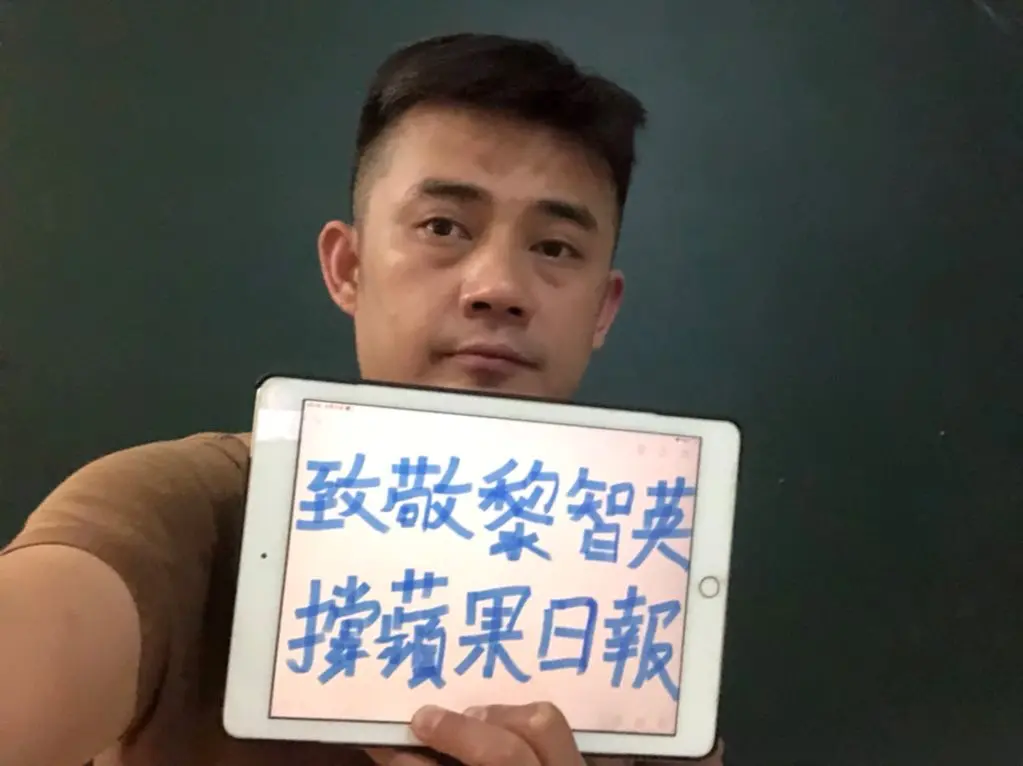 致敬黎智英
撐蘋果日報